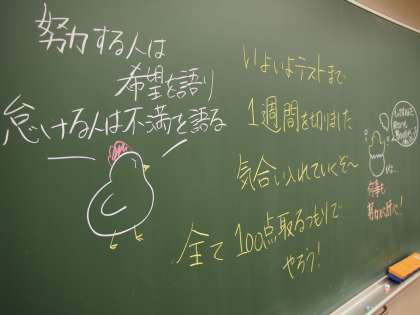 努力する人は
希望を語り
怠ける人は不満を語る
いよいよテストまで
1週間を切りました
気合い入れていくぞ〜
全て100点取るつもりで
やろう!
何事も